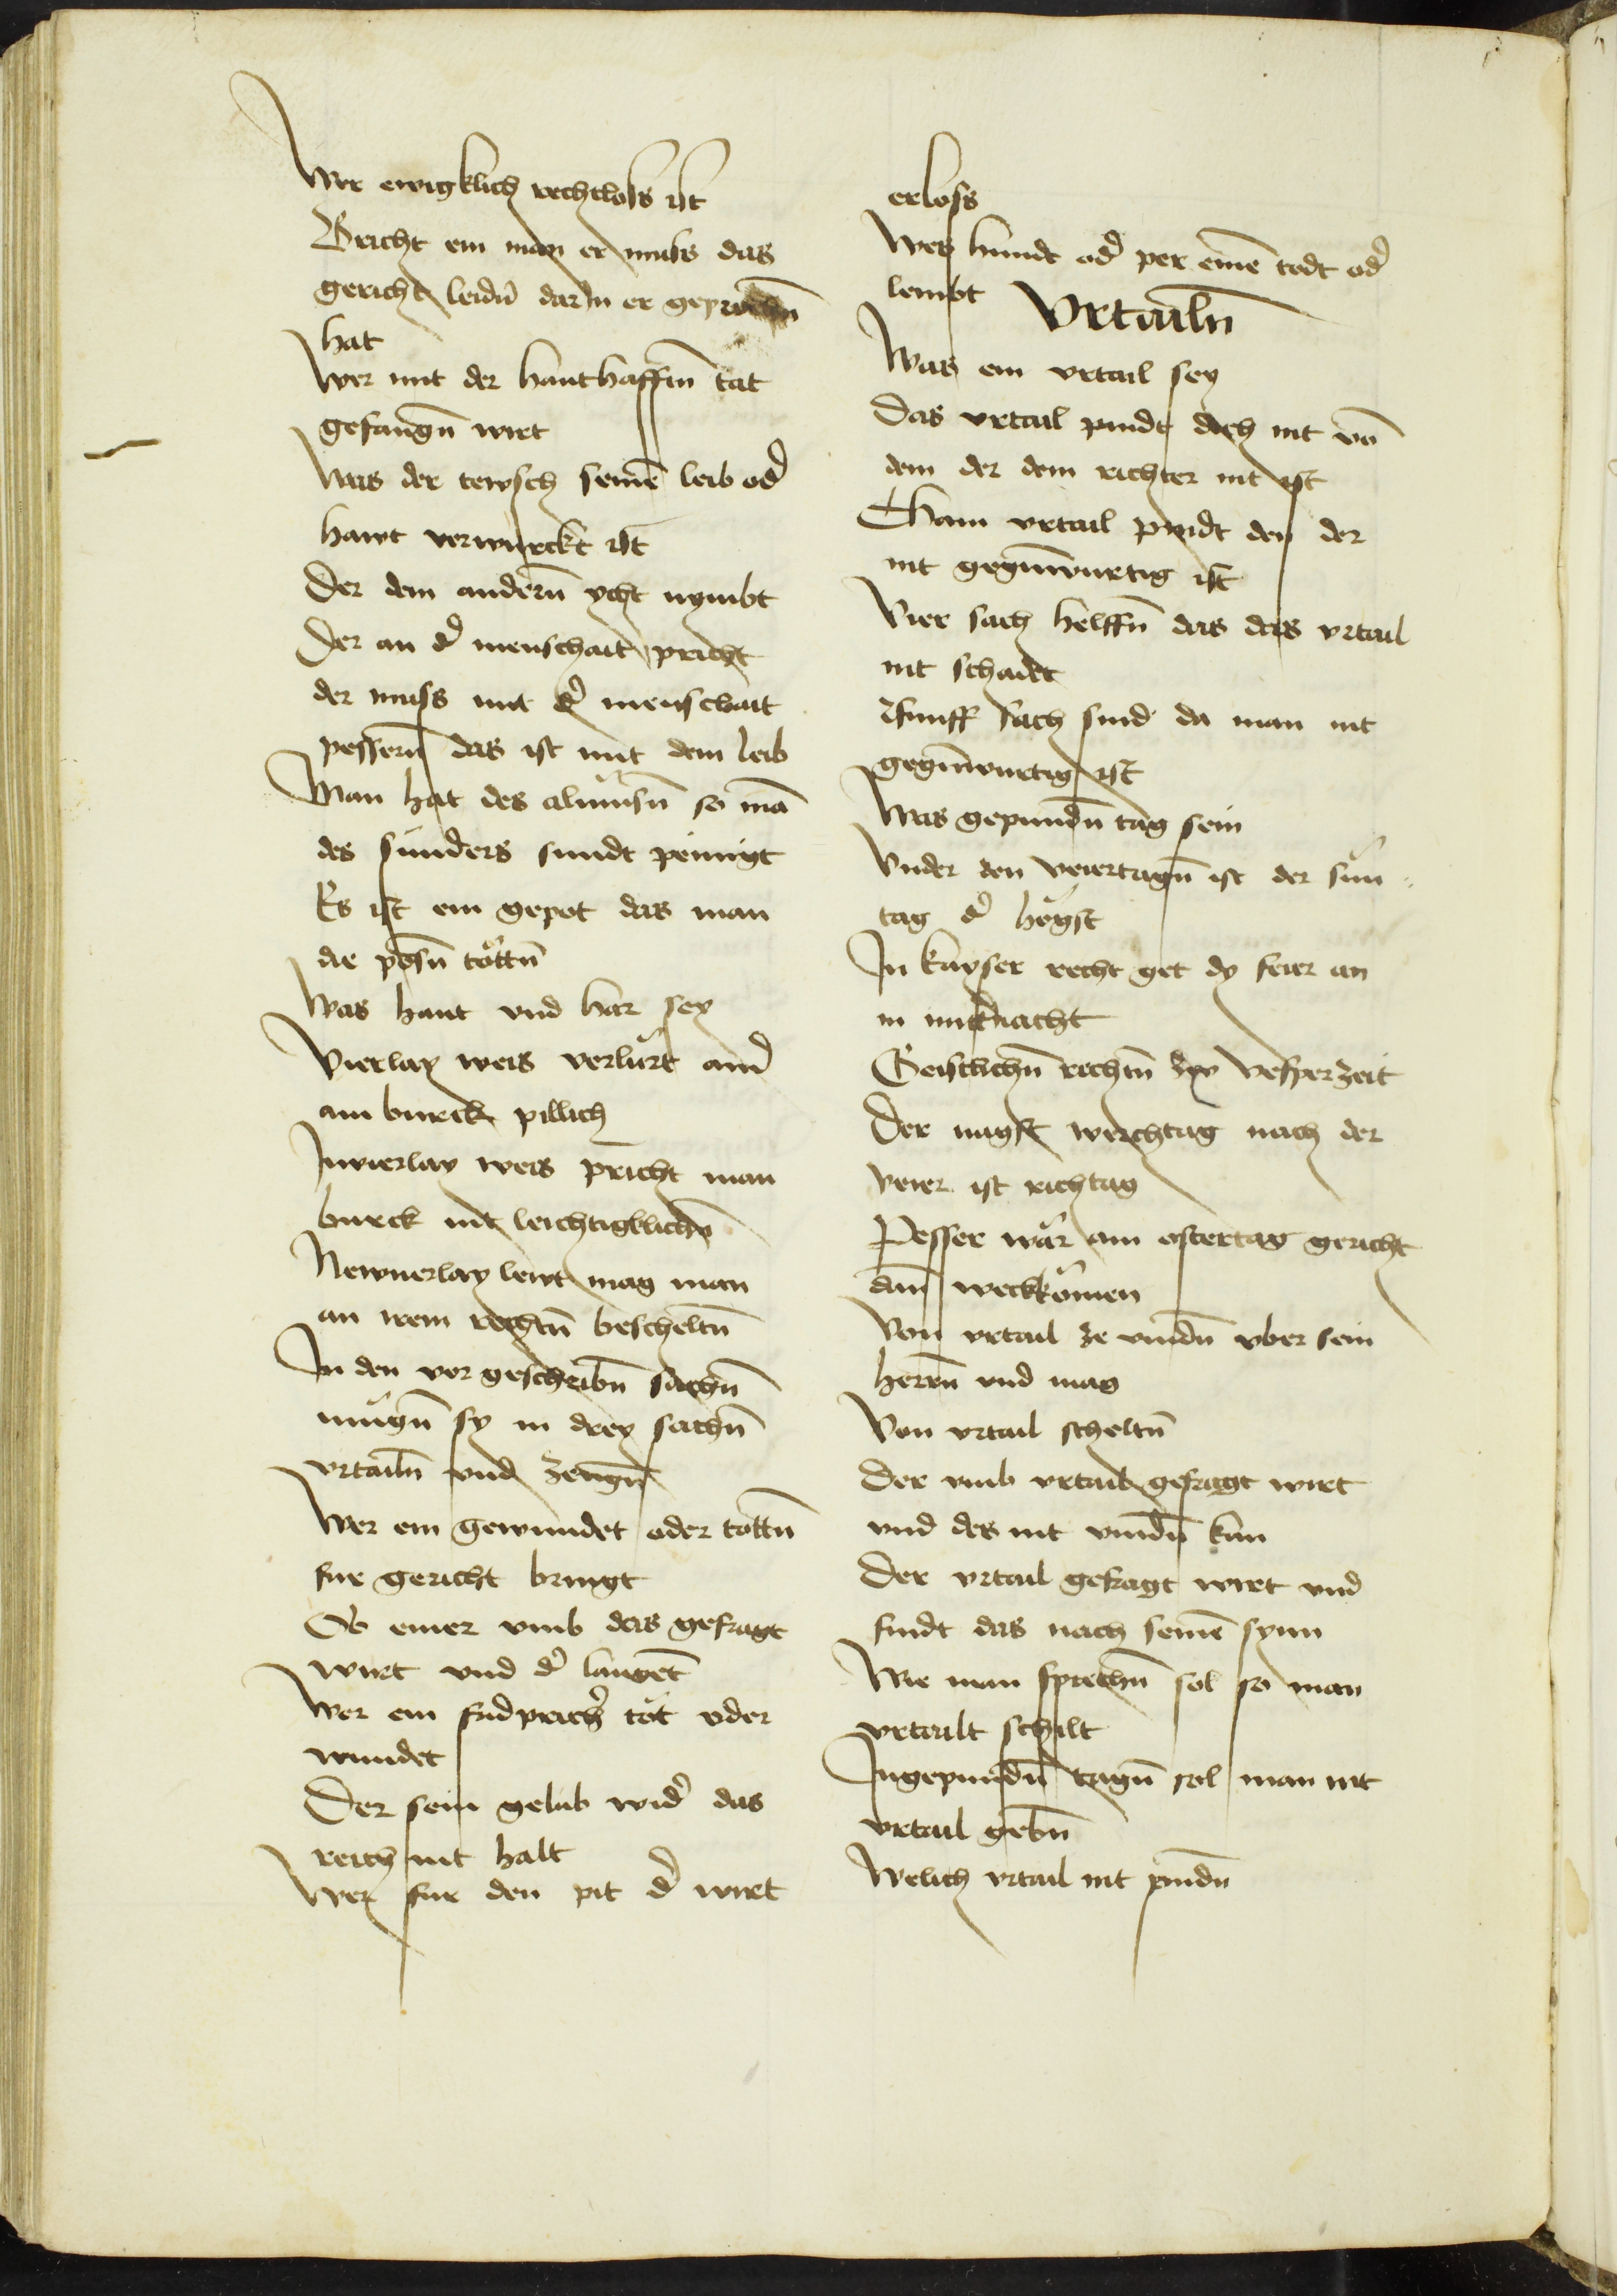 Wer ewigklich rechtloss ist
Bricht ein man er muss das
gericht leidn̄ dar In er geprochn̄
hat
Wer mit der hanthafftn̄ tat
gefangn̄ wirt
Was der tewsch seinē leib od᷎
hawt verwurckt ist
Der dem andern̄ ycht nymbt
Der an d᷎ menschait pricht
der muss mit d᷎ menschait
pessern̄ das ist mit dem leib
Man hat des almüsn̄ so mā
des sünders sundt peinigt
Es ist ein gepot das man
die pösn̄ töttn̄
Was haut vnd har sey
Vierlay weis verlürt ain᷎
ain burck pillich
Invierlay weis pricht man
burck nit leichtigklichn̄
Newnerlay lewt mag man
an irem rechtn̄ bescheltn̄
In den vor geschribn̄ sachn̄
mügn̄ sy in drey sachn̄
vrtailn̄ vnd zeugn̄
Wer ein gewundet oder tottn̄
fur gericht bringt
Ob einer vmb das gefragt
wirt vnd d᷎ laugēt
Wer ein fridprech᷎ töt oder
wundet
Der sein gelub wid᷎ das
reich nit halt
Wer fur den pit d᷎ wirt
erloss
Wes hundt od᷎ per einē todt od᷎
lembt
Vrtailn̄
Was ein vrtail sey
Das vrtail pindt doch nit vō
dem der dem richter nit ist
Chain vrtail pindt den der
nit gegn̄wurtig ist
Vier sach helffn̄ das das vrtail
nit schadt
Funff sach sind da man nit
gegn̄wurtig ist
Was gepundn̄ tag sein
Vnder den veiertagn̄ ist der sün
tag d᷎ högst
In kayser recht get dy feier an
in mitt᷎nacht
Geistlichn̄ rechtn̄ zw vesper zeit
Der nagst werchtag nach der
veier ist richtag
Pesser wär am ostertag gericht
dan̄ weckkömen
Von vrtail ze vindn̄ vber sein
herrn̄ vnd mag
Von vrtail scheltn̄
Der vmb vrtail gefragt wirt
vnd des nit vindn̄ kan
Der vrtail gefragt wirt vnd
findt das nach seinē synn
Wie man sprechn̄ sol so man
vrtailt schilt
Ingepundn̄ tagn̄ sol man nit
vrtail gebn̄
Welich vrtail nit pindn̄